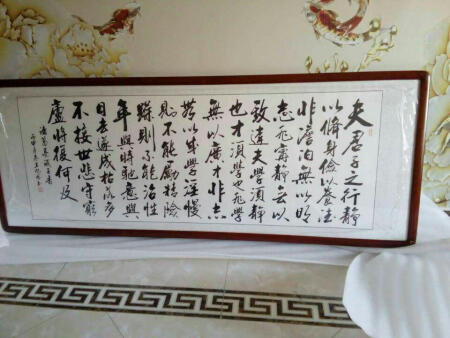 夫君子之行静
以脩身儉以養德
非澹泊無以明
志非寧静無以
致遠夫學須静
也才須學也非學
無以廣才非志
無以成學淫慢
則不能勵精險
躁則不能治性
年與時馳意與
日去遂成枯落多
不接世悲守窮
廬將復何及
諸葛亮誡子書